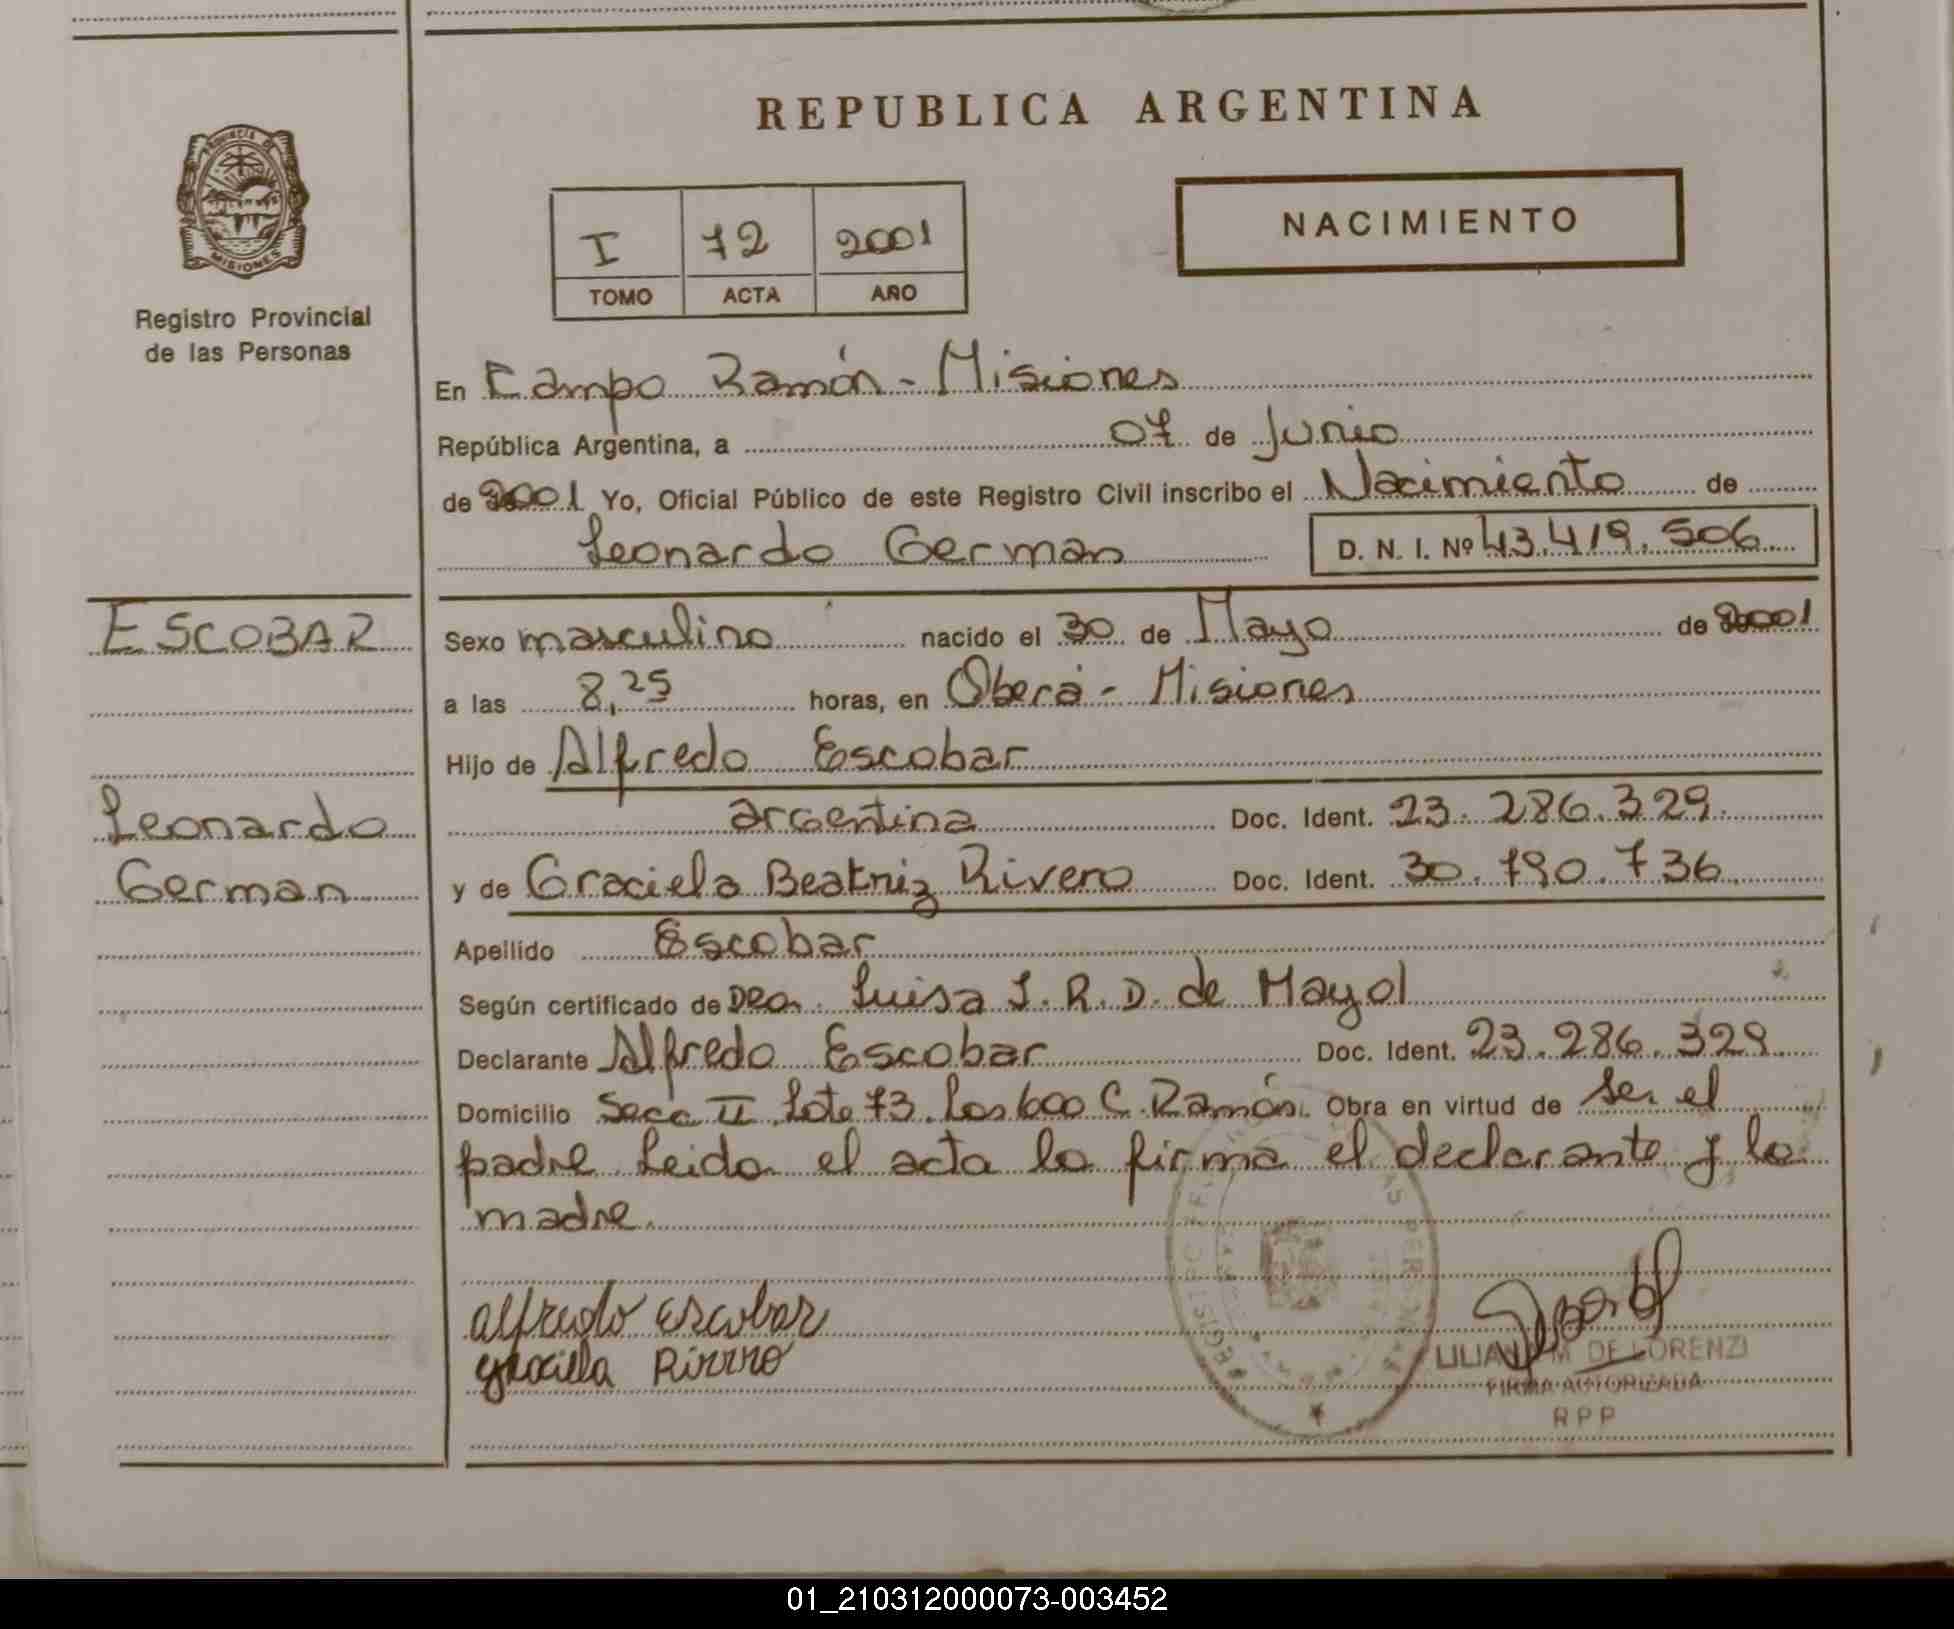 REPUBLICA ARGENTINA
PROVINCIA DE
MISIONES
Registro Provincial
de las Personas
I 72 2001
TOMO ACTA AÑO
NACIMIENTO
En Campo Ramón - Misiones
República Argentina, a 07 de Junio
de 2001 Yo, Oficial Público de este Registro Civil inscribo el Nacimiento de
Leonardo German D. N. I. Nº 43.419.506
ESCOBAR
Leonardo
German
Sexo masculino nacido el 30 de Mayo de 2001
a las 8,25 horas, en Oberá - Misiones
Hijo de Alfredo Escobar
argentina Doc. Ident. 23.286.329
y de Graciela Beatriz Rivero Doc. Ident. 30.790.736
Apellido Escobar
Según certificado de Dra. Luisa J. R. D. de Mayol
Declarante Alfredo Escobar Doc. Ident. 23.286.329
Domicilio Secc II Lote 73 Los 600 C. Ramón. Obra en virtud de ser el
padre Leida el acta la firma el declarante y la
madre.
alfredo Escobar
graciela Rivero
M DE LORENZI
FIRMA AUTORIZADA
RPP
01_210312000073-003452